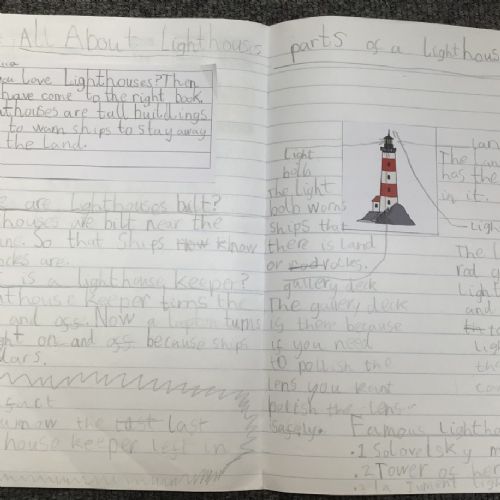 All About Lighthouses
you love Lighthouses? Then
have come to the right book.
hthouses are tall buildings
to warn ships to stay away
the land.
e are Lighthouses bilt?
houses are bilt near the
So that ships know
ocks are.
is a lighthouse keeper?
hthouse keeper turns the
and off. Now a turns
ght on and off because ships
dars.
know the last
house keeper left in
parts of a Lighthous
Light
bolb
The light
bolb worns
ships that
there is land
or rocks.
gallery deck
The gallery deck
is there because
if you need
to pollish the
lens you kant
polish the lens
Safely.
Lan
The lan
has the
in it.
Ligh
The L
rod co
Light
and
Lig
the
co
Famous Lighthou
.1 Solovetsky m
.2 Tower of her
.3 La Jument Lig